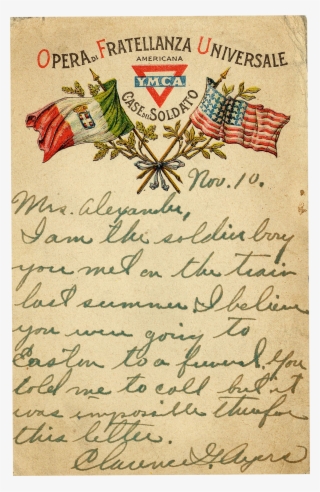 OPERA DI FRATELLANZA UNIVERSALE
AMERICANA
YMCA
CASE DEL SOLDATO
Nov. 10.
Mrs. Alexander,
I am the soldier boy
you met on the train
last summer I believe
you were going to
Easton to a funeral. You
told me to call but it
was impossible therefor
this letter.
Clarence G. Ayers